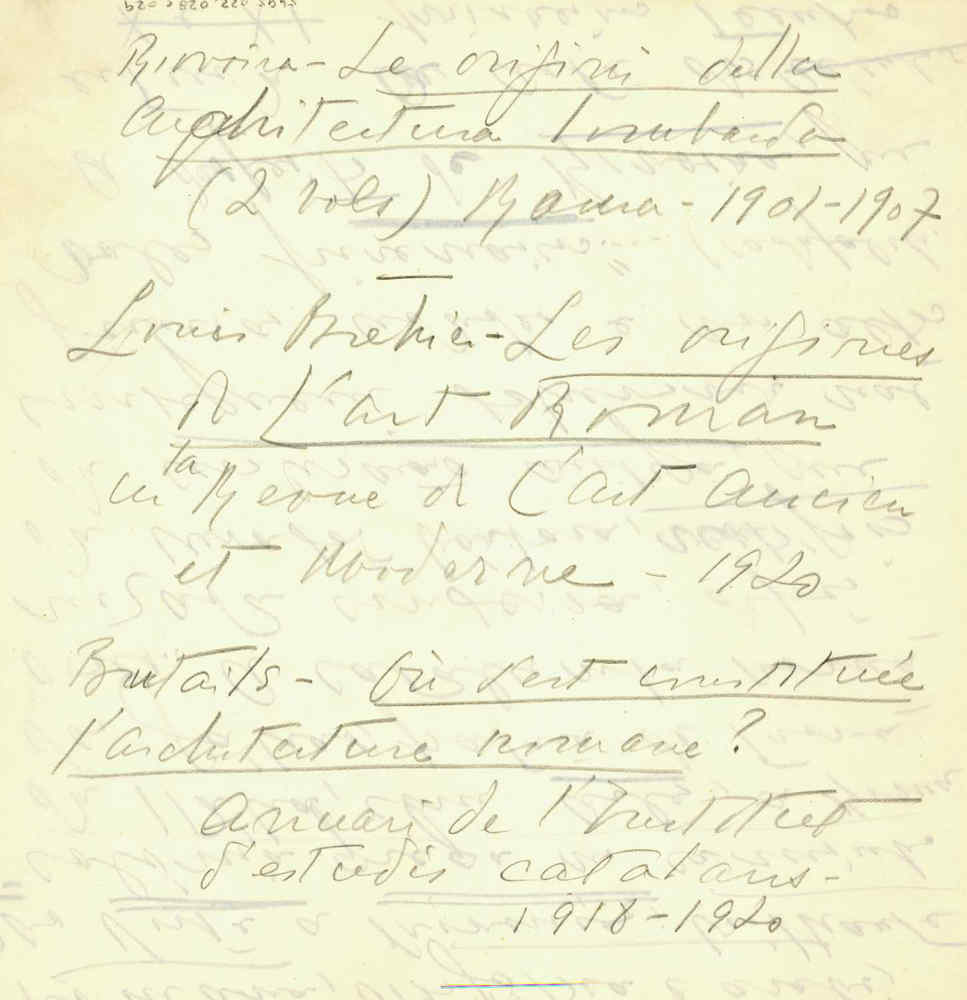 Rivoira - Le origini della
Architettura lombarda
(2 vols) Roma - 1901-1907
Louis Brehier - Les origines
de L'art Roman
in la Revue de L'art Ancien
et Moderne - 1920
Brutails - Où s'est constituée
l'architecture romane?
Anuari de l'Institut
d'estudis catalans -
1918-1920